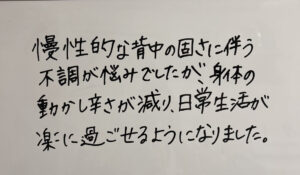 慢性的な背中の固さに伴う
不調が悩みでしたが、身体の
動かし辛さが減り、日常生活が
楽に過ごせるようになりました。